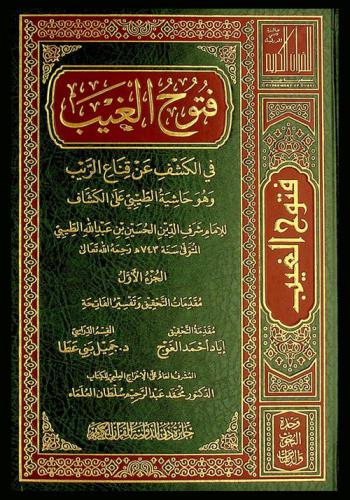 فتوح الغيب
في الكشف عن قناع الريب
وهو حاشية الطيبي على الكشاف
للإمام شرف الدين الحسين بن عبد الله الطيبي
المتوفى سنة ٧٤٣ هـ رحمه الله تعالى
الجزء الأول
مقدمات التحقيق وتفسير الفاتحة
مقدمة التحقيق
إياد أحمد الغوج
القسم الدراسي
د. جميل بني عطا
المشرف العام على الإخراج العلمي للكتاب
الدكتور محمد عبد الرحيم سلطان العلماء
جائزة دبي الدولية للقرآن الكريم
فتوح الغيب
وحدة
البحوث
والدراسات